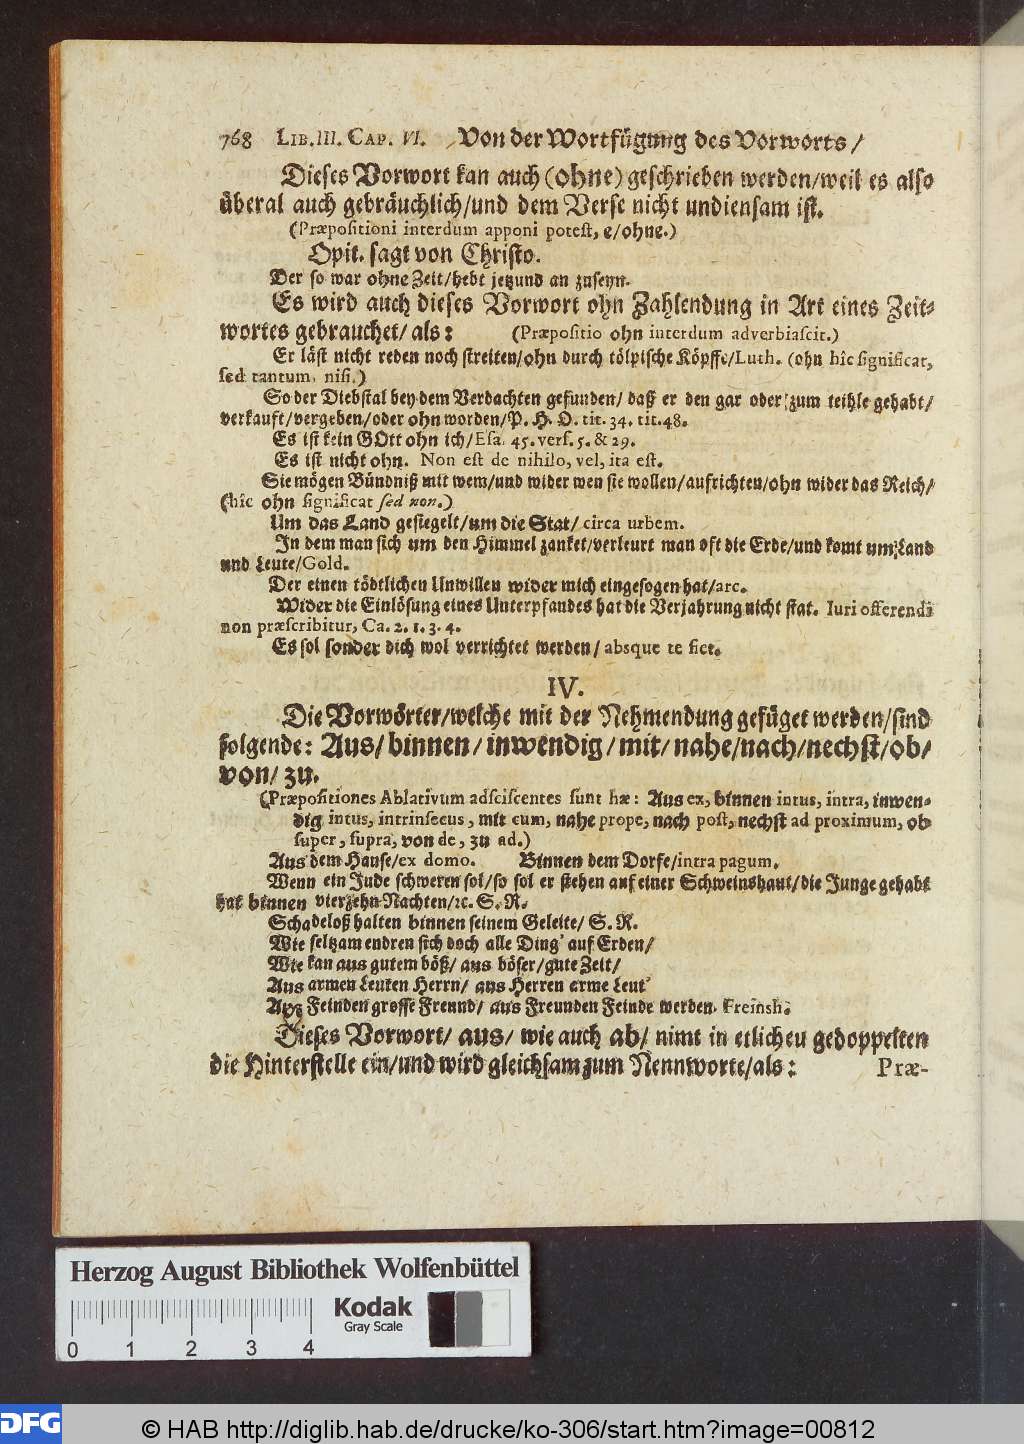 768 LIB. III. CAP. VI. Von der Wortfügung des Vorworts/
Dieses Vorwort kan auch (ohne) geschrieben werden/weil es also
überal auch gebräuchlich/und dem Verse nicht undiensam ist.
(Præpositioni interdum apponi potest, e/ohne.)
Opit. sagt von Christo.
Der so war ohne Zeit/hebt jetzund an zuseyn.
Es wird auch dieses Vorwort ohn Zahlendung in Art eines Zeit-
wortes gebrauchet/ als: (Præpositio ohn interdum adverbiascit.)
Er läst nicht reden noch streiten/ohn durch tölpische Köpffe/Luth. (ohn hîc significat,
sed tantum, nisi.)
So der Diebstal bey dem Verdachten gefunden/ daß er den gar oder zum teihle gehabt/
verkauft/vergeben/oder ohn worden/P. H. O. tit. 34. tit. 48.
Es ist kein GOtt ohn ich/Esa. 45. vers. 5. & 29.
Es ist nicht ohn. Non est de nihilo, vel, ita est.
Sie mögen Bündniß mit wem/und wider wen sie wollen/aufrichten/ohn wider das Reich/
(hîc ohn significat sed non.)
Um das Land gesiegelt/um die Stat/ circa urbem.
In dem man sich um den Himmel zanket/verleurt man oft die Erde/und komt um Land
und Leute/Gold.
Der einen tödtlichen Unwillen wider mich eingesogen hat/arc.
Wider die Einlösung eines Unterpfandes hat die Verjahrung nicht stat. Iuri offerendi
non præscribitur, Ca. 2. 1. 3. 4.
Es sol sonder dich wol verrichtet werden/ absque te fiet.
IV.
Die Vorwörter/welche mit der Nehmendung gefüget werden/sind
folgende: Aus/ binnen/ inwendig/ mit/ nahe/nach/nechst/ob/
von/ zu.
(Præpositiones Ablativum adsciscentes sunt hæ: Aus ex, binnen intus, intra, inwen-
dig intus, intrinsecus, mit cum, nahe prope, nach post, nechst ad proximum, ob
super, supra, von de, zu ad.)
Aus dem Hause/ex domo. Binnen dem Dorfe/intra pagum.
Wenn ein Jude schweren sol/so sol er stehen auf einer Schweinshaut/die Junge gehabt
hat binnen vierzehn Nachten/ꝛc. S. R.
Schadeloß halten binnen seinem Geleite/ S. R.
Wie seltzam endren sich doch alle Ding' auf Erden/
Wie kan aus gutem böß/ aus böser/gute Zeit/
Aus armen Leuten Herrn/ aus Herren arme Leut'
Aus Feinden grosse Freund/ aus Freunden Feinde werden. Freinsh.
Dieses Vorwort/ aus/ wie auch ab/ nimt in etlichen gedoppelten
die Hinterstelle ein/und wird gleichsam zum Nennworte/als: Præ-
Herzog August Bibliothek Wolfenbüttel
Kodak
Gray Scale
0 1 2 3 4
DFG © HAB http://diglib.hab.de/drucke/ko-306/start.htm?image=00812